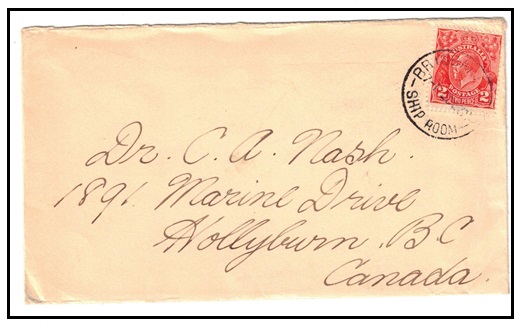 AUSTRALIA
POSTAGE
2 TWO PENCE 2
SHIP ROOM
Dr. C. A. Nash.
1891. Marine Drive
Hollyburn. BC
Canada.